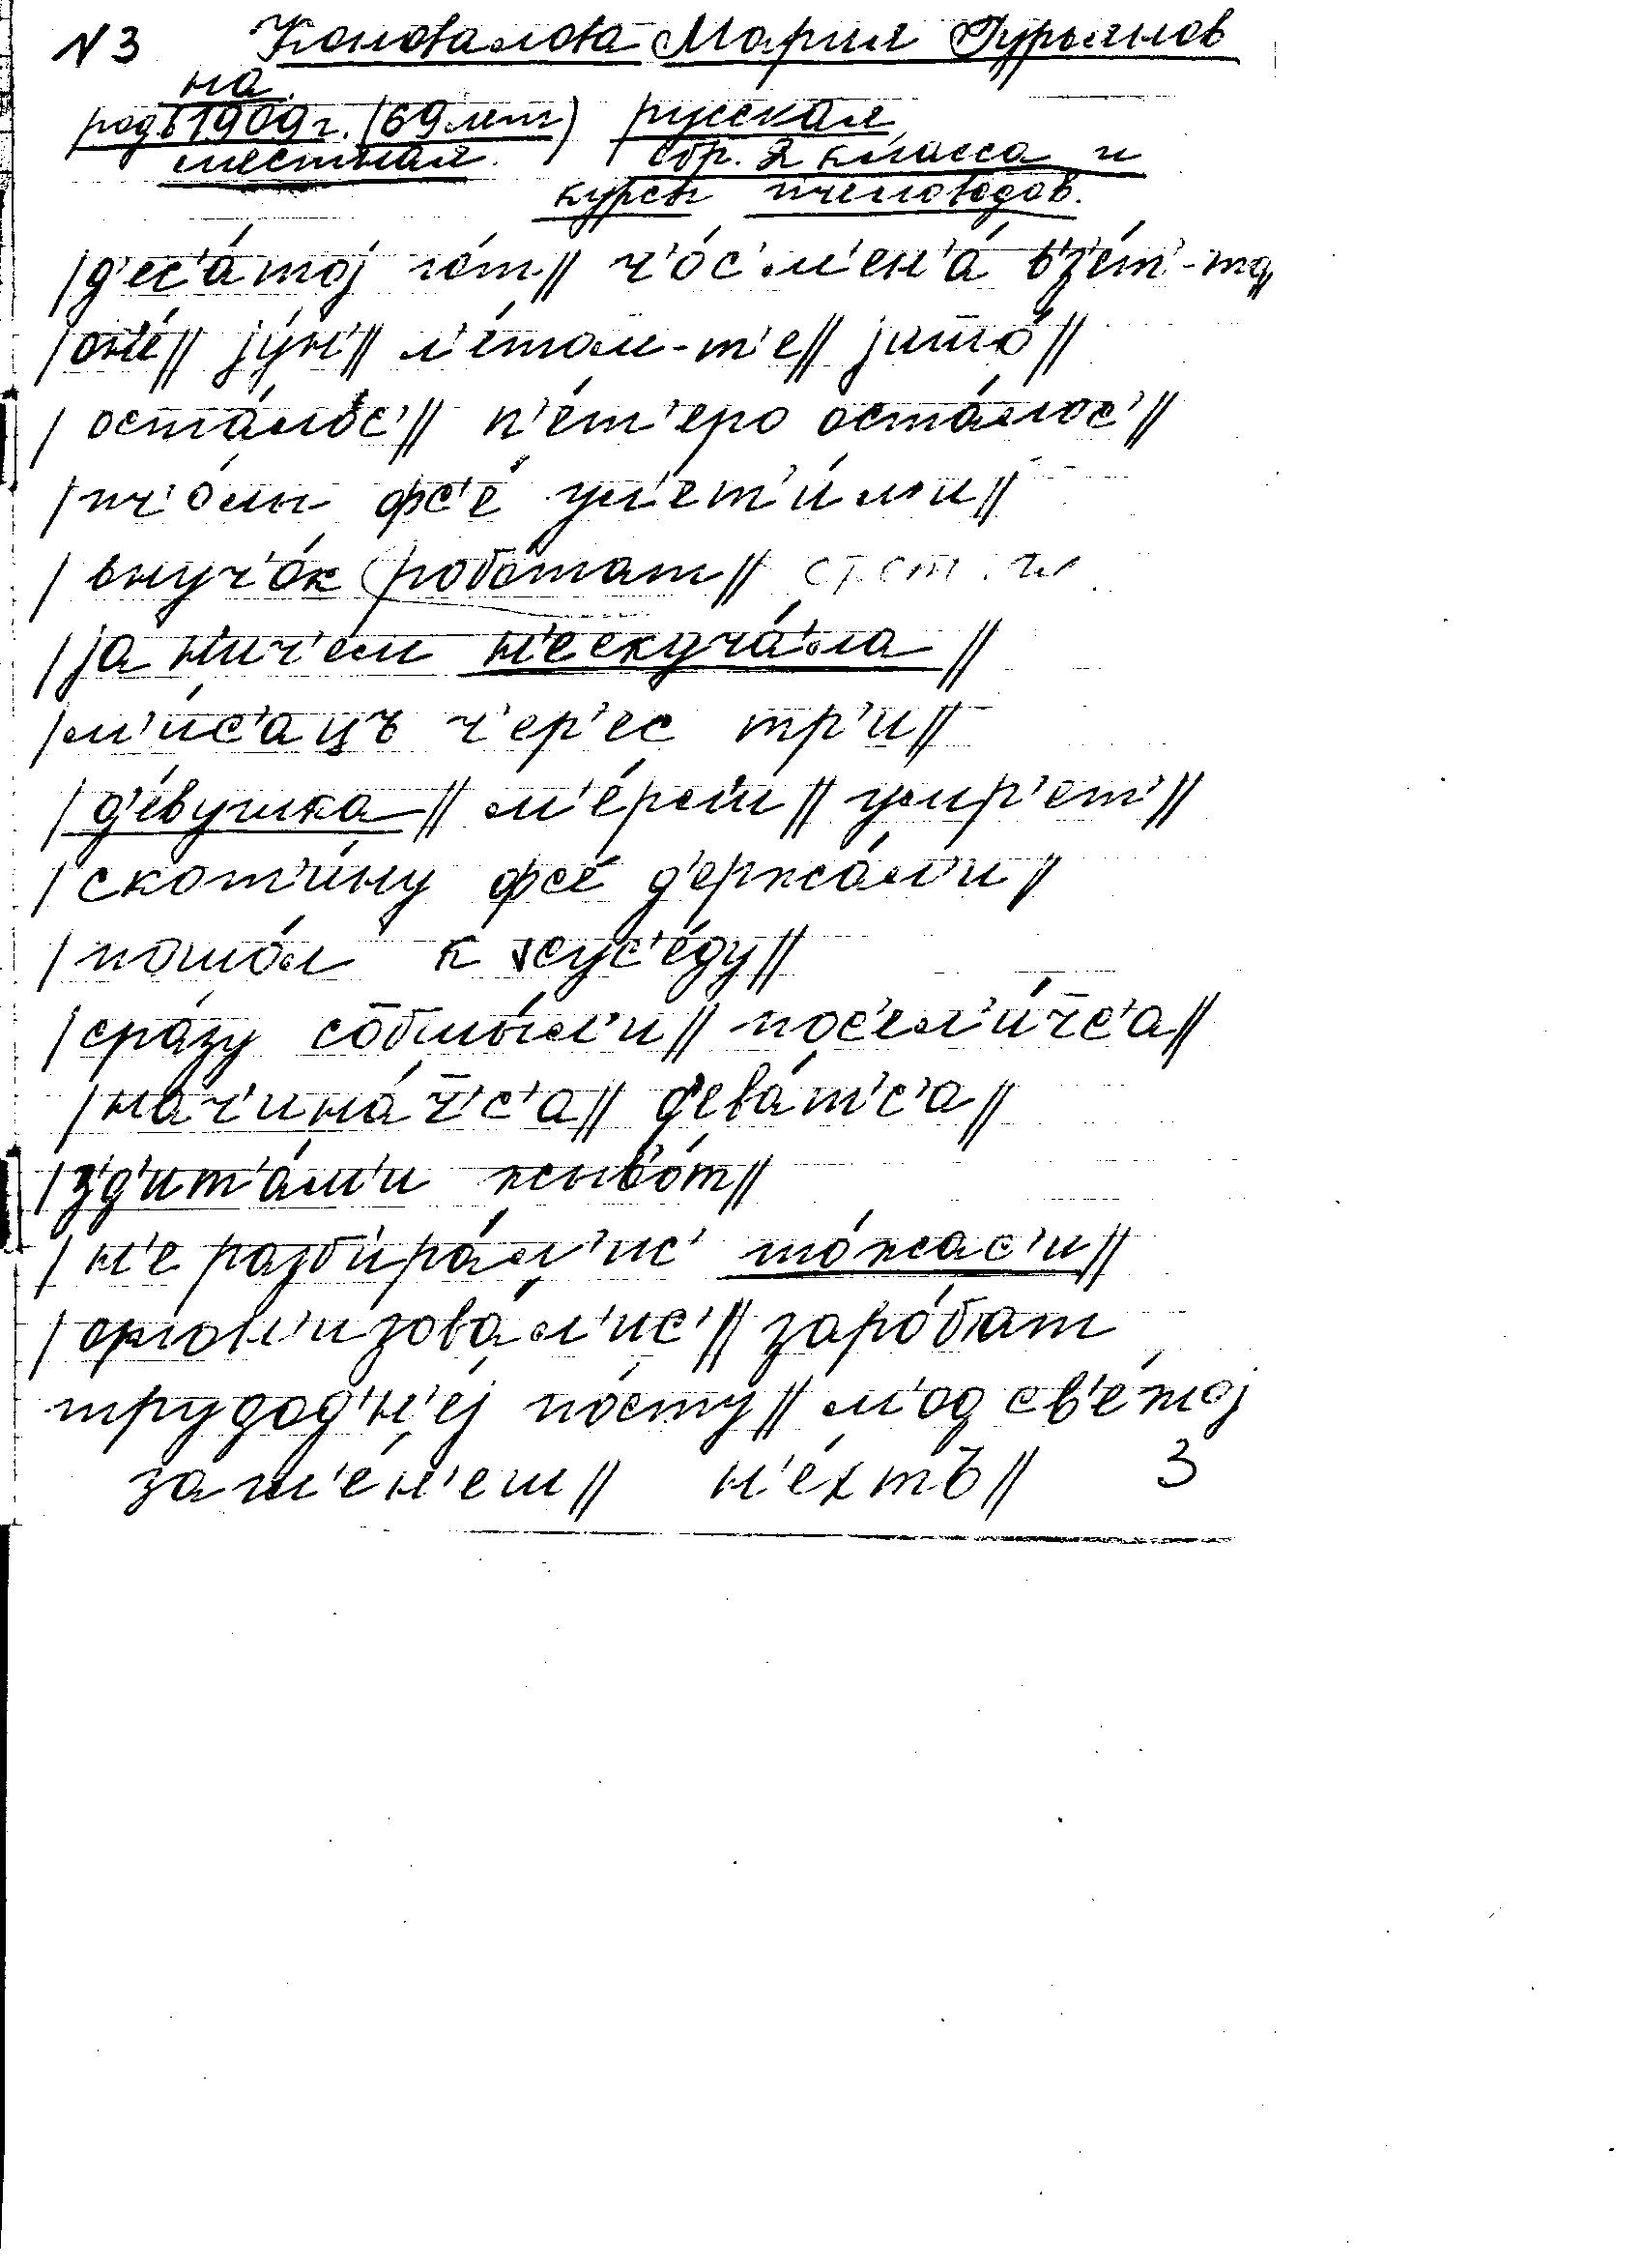 N3 Коновалова Мария Гурьянов
на.
род. 1909 г. (69 лет) русская,
местная. обр. 2 класса и
курсы пчеловодов.
/д'ес'а́тој го́т// ч'о́с' м'ен'а́ в'з'е́т'-то//
/он'е́// јӯн'// л'е́том-т'е// јито́//
/оста́лос'// п'е́т'еро оста́лос'//
/пч'о́лы фс'е́ ул'ет'и́ли//
/внуч'о́к робо́тат//
/ја нич'ем н'ескуча́ла//
/м'и́с'ацъ ч'ер'ес тр'и//
/д'е́вушка// м'е́рли// умр'ет'//
/скот'и́ну фс'е́ д'ержа́л'и//
/пошо́л к сус'е́ду//
/сра́зу собшы́л'и// пос'ел'и́ч̄'с'а//
/нач'ина́ч̄'с'а// д'ева́т'с'а//
/з'д'ит'а́м'и жыв'о́т//
/н'е разбира́л'ис' то́жас'и//
/орган'изова́л'ис'// заро́бат
трудод'н'еј по́сту// м'од св'е́жој
зам'е́н'еш// н'е́хтъ// 3